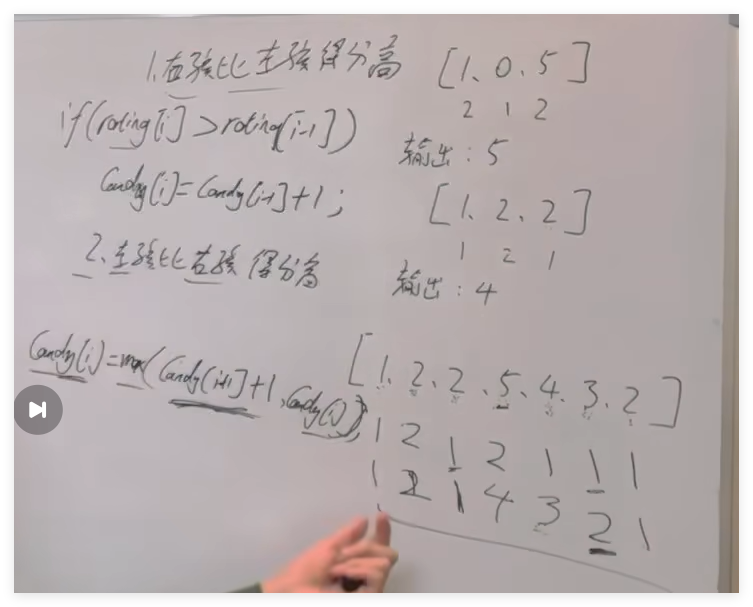 1.右孩比左孩得分高
if(rating[i]>rating[i-1])
Candy[i]=Candy[i-1]+1;
2.左孩比右孩得分高
Candy[i]=max(Candy[i+1]+1,Candy[i]);
[1、0、5]
2 1 2
输出:5
[1、2、2]
1 2 1
输出:4
[1、2、2、5、4、3、2]
1 2 1 2 1 1 1
1 2 1 4 3 2 1